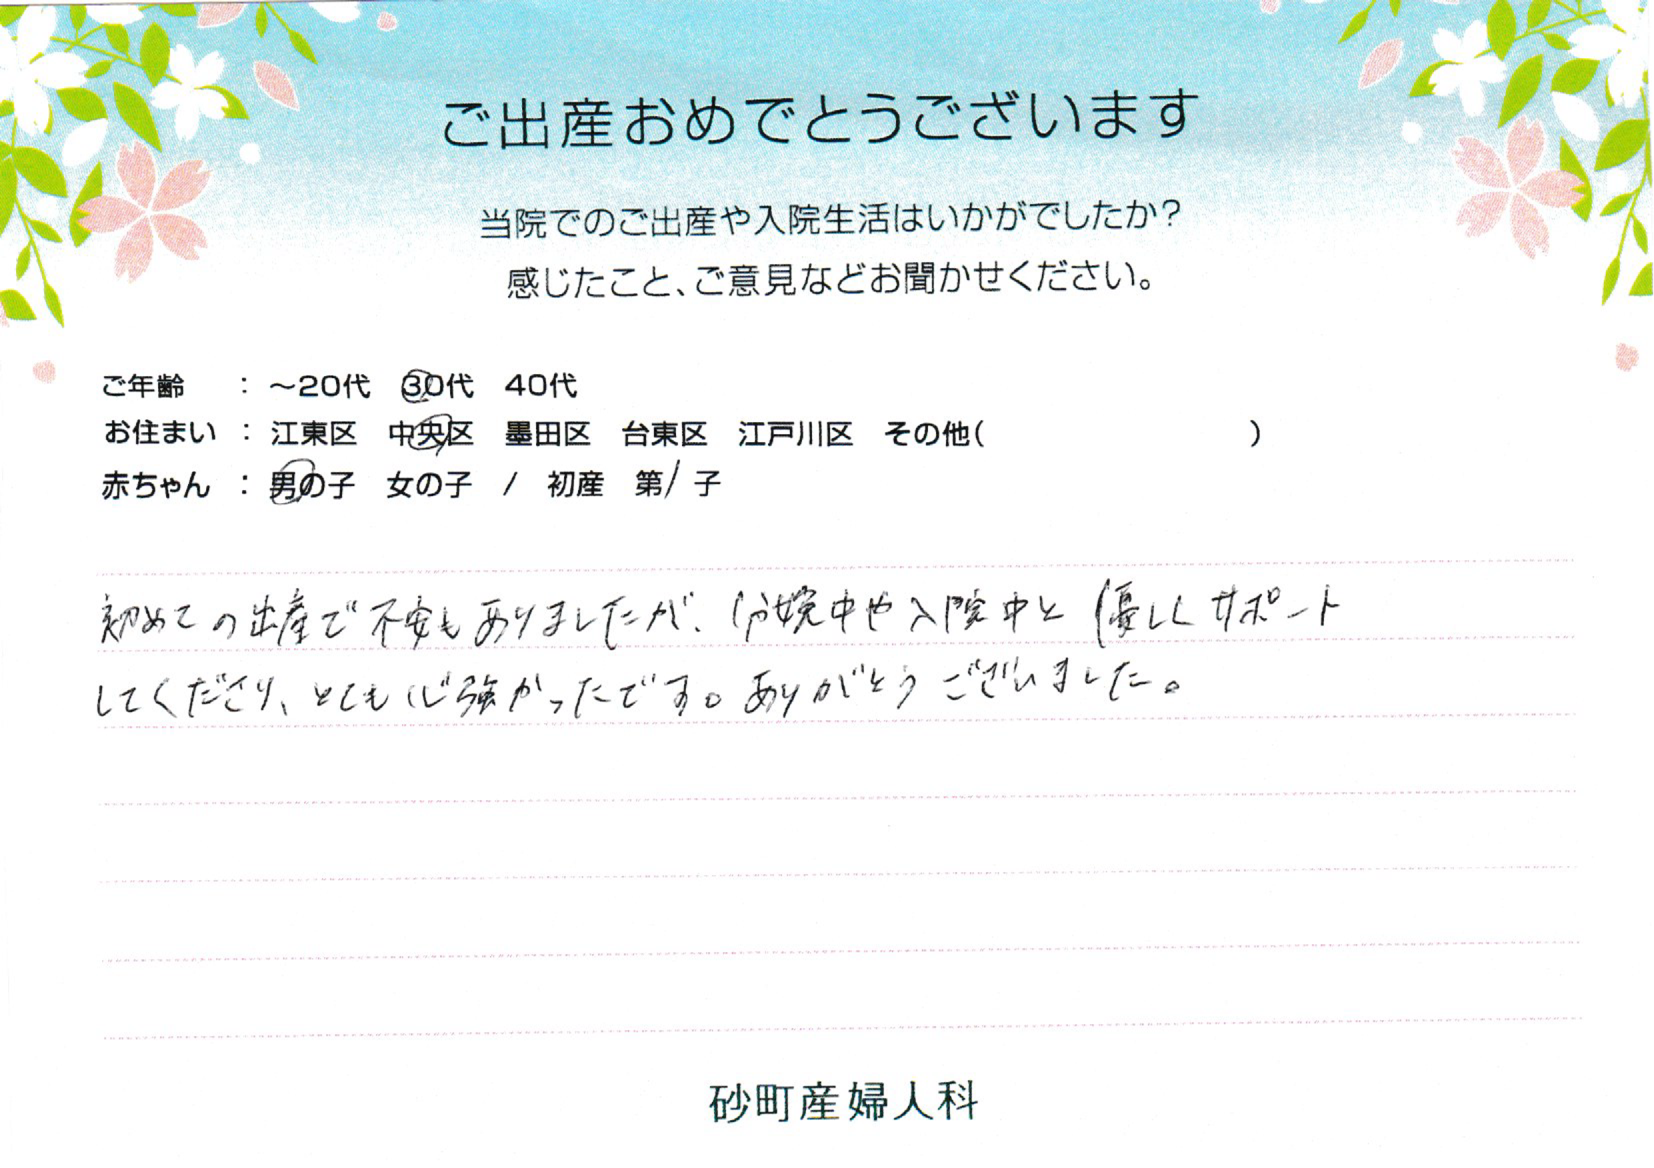 ご出産おめでとうございます
当院でのご出産や入院生活はいかがでしたか?
感じたこと、ご意見などお聞かせください。
ご年齢 : ～20代 30代 40代
お住まい : 江東区 中央区 墨田区 台東区 江戸川区 その他( )
赤ちゃん : 男の子 女の子 / 初産 第1子
初めての出産で不安もありましたが、分娩中や入院中と優しくサポート
してくださり、とても心強かったです。ありがとうございました。
砂町産婦人科